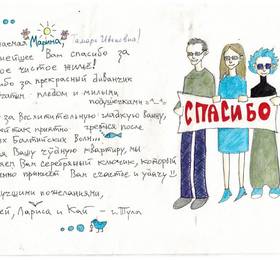 Марина, Тамара Ивановна!
Вам спасибо за
чистое жильё!
бо за прекрасный диванчик
пледом и милыми
подушечками
за восхитительную гладкую ванну,
так приятно греться после
Балтийских волн...
Вашу чудную квартиру, мы
Вам серебряный ключик, который
принесёт Вам счастье и удачу!!
учшими пожеланиями,
Лариса и Кай - г. Тула
СПАСИБО